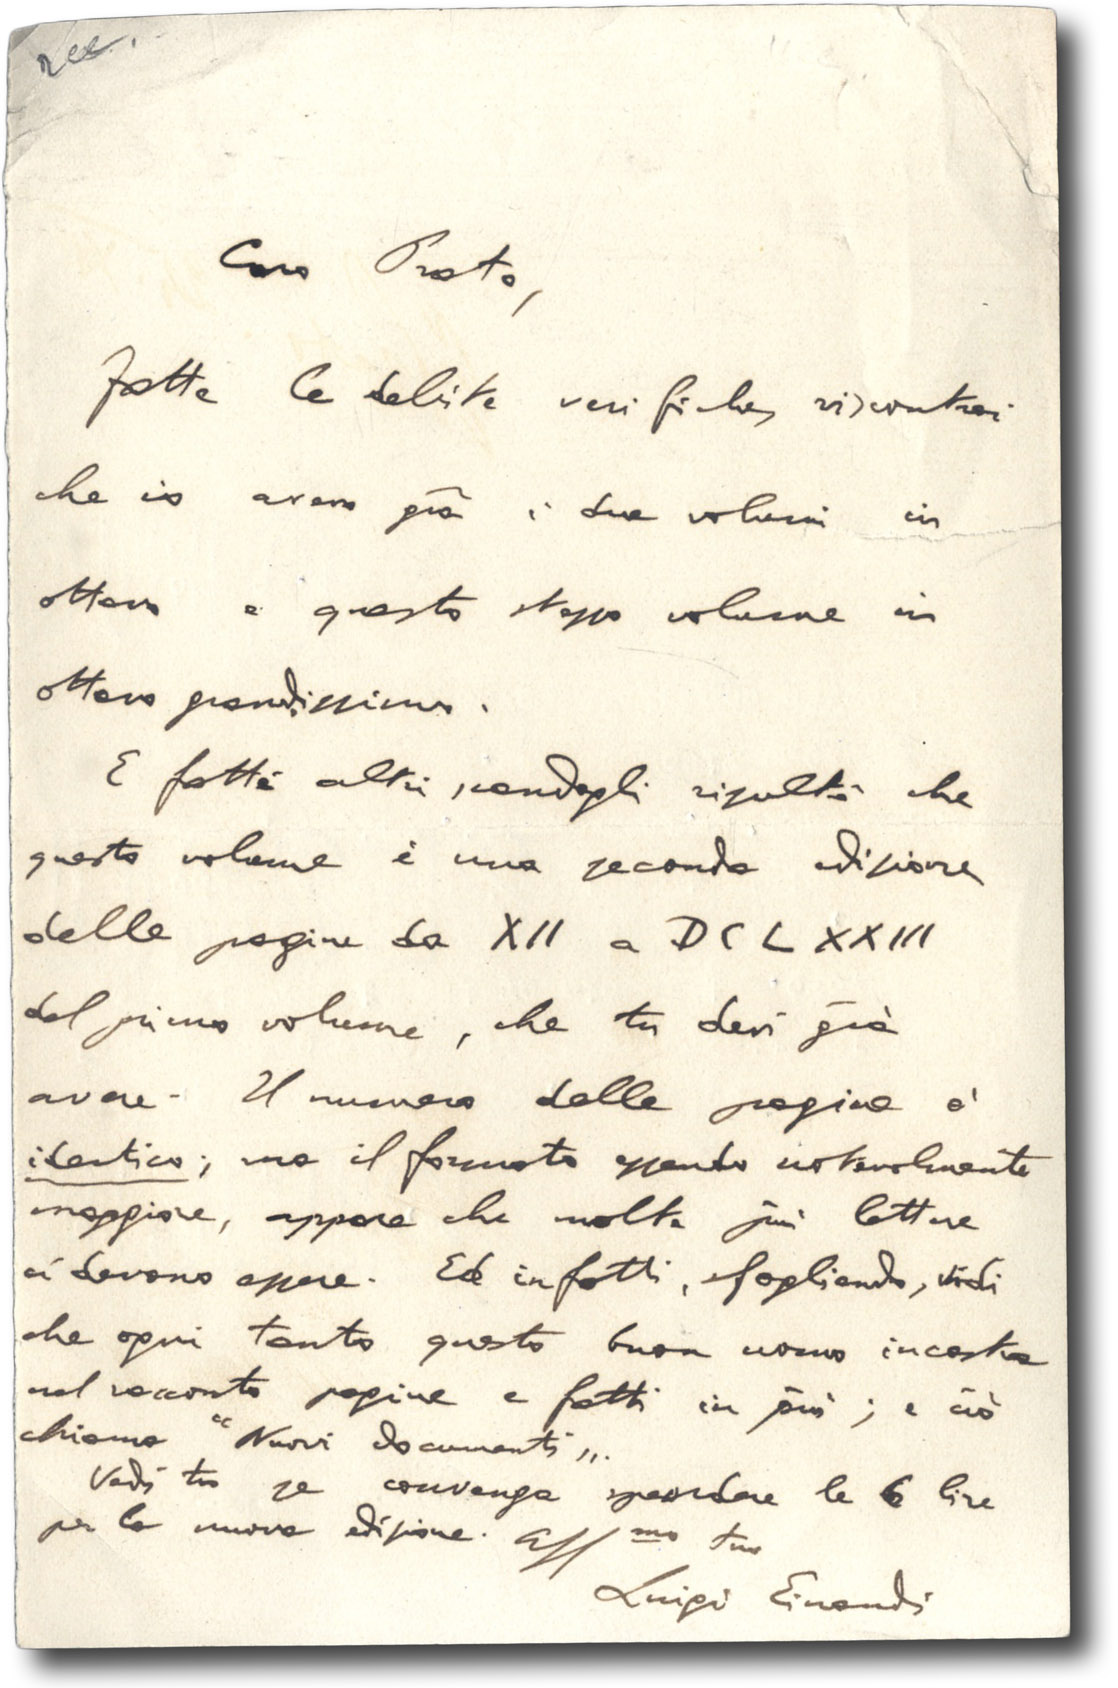 Caro Prato,
fatte le debite verifiche, riscontrai
che io avevo già i due volumi in
ottavo e questo stesso volume in
ottavo grandissimo.
E fatti altri scandagli risultò che
questo volume è una seconda edizione
delle pagine da XII a DCLXXIII
del primo volume, che tu devi già
avere. Il numero delle pagine è
identico; ma il formato essendo notevolmente
maggiore, appare che molte più lettere
ci devono essere. Ed infatti, sfogliando, vidi
che ogni tanto questo buon uomo incastra
nel racconto pagine e fatti in più; e ciò
chiama "Nuovi documenti„.
Vedi tu se convenga spendere le 6 lire
per la nuova edizione. Aff.mo tuo
Luigi Einaudi